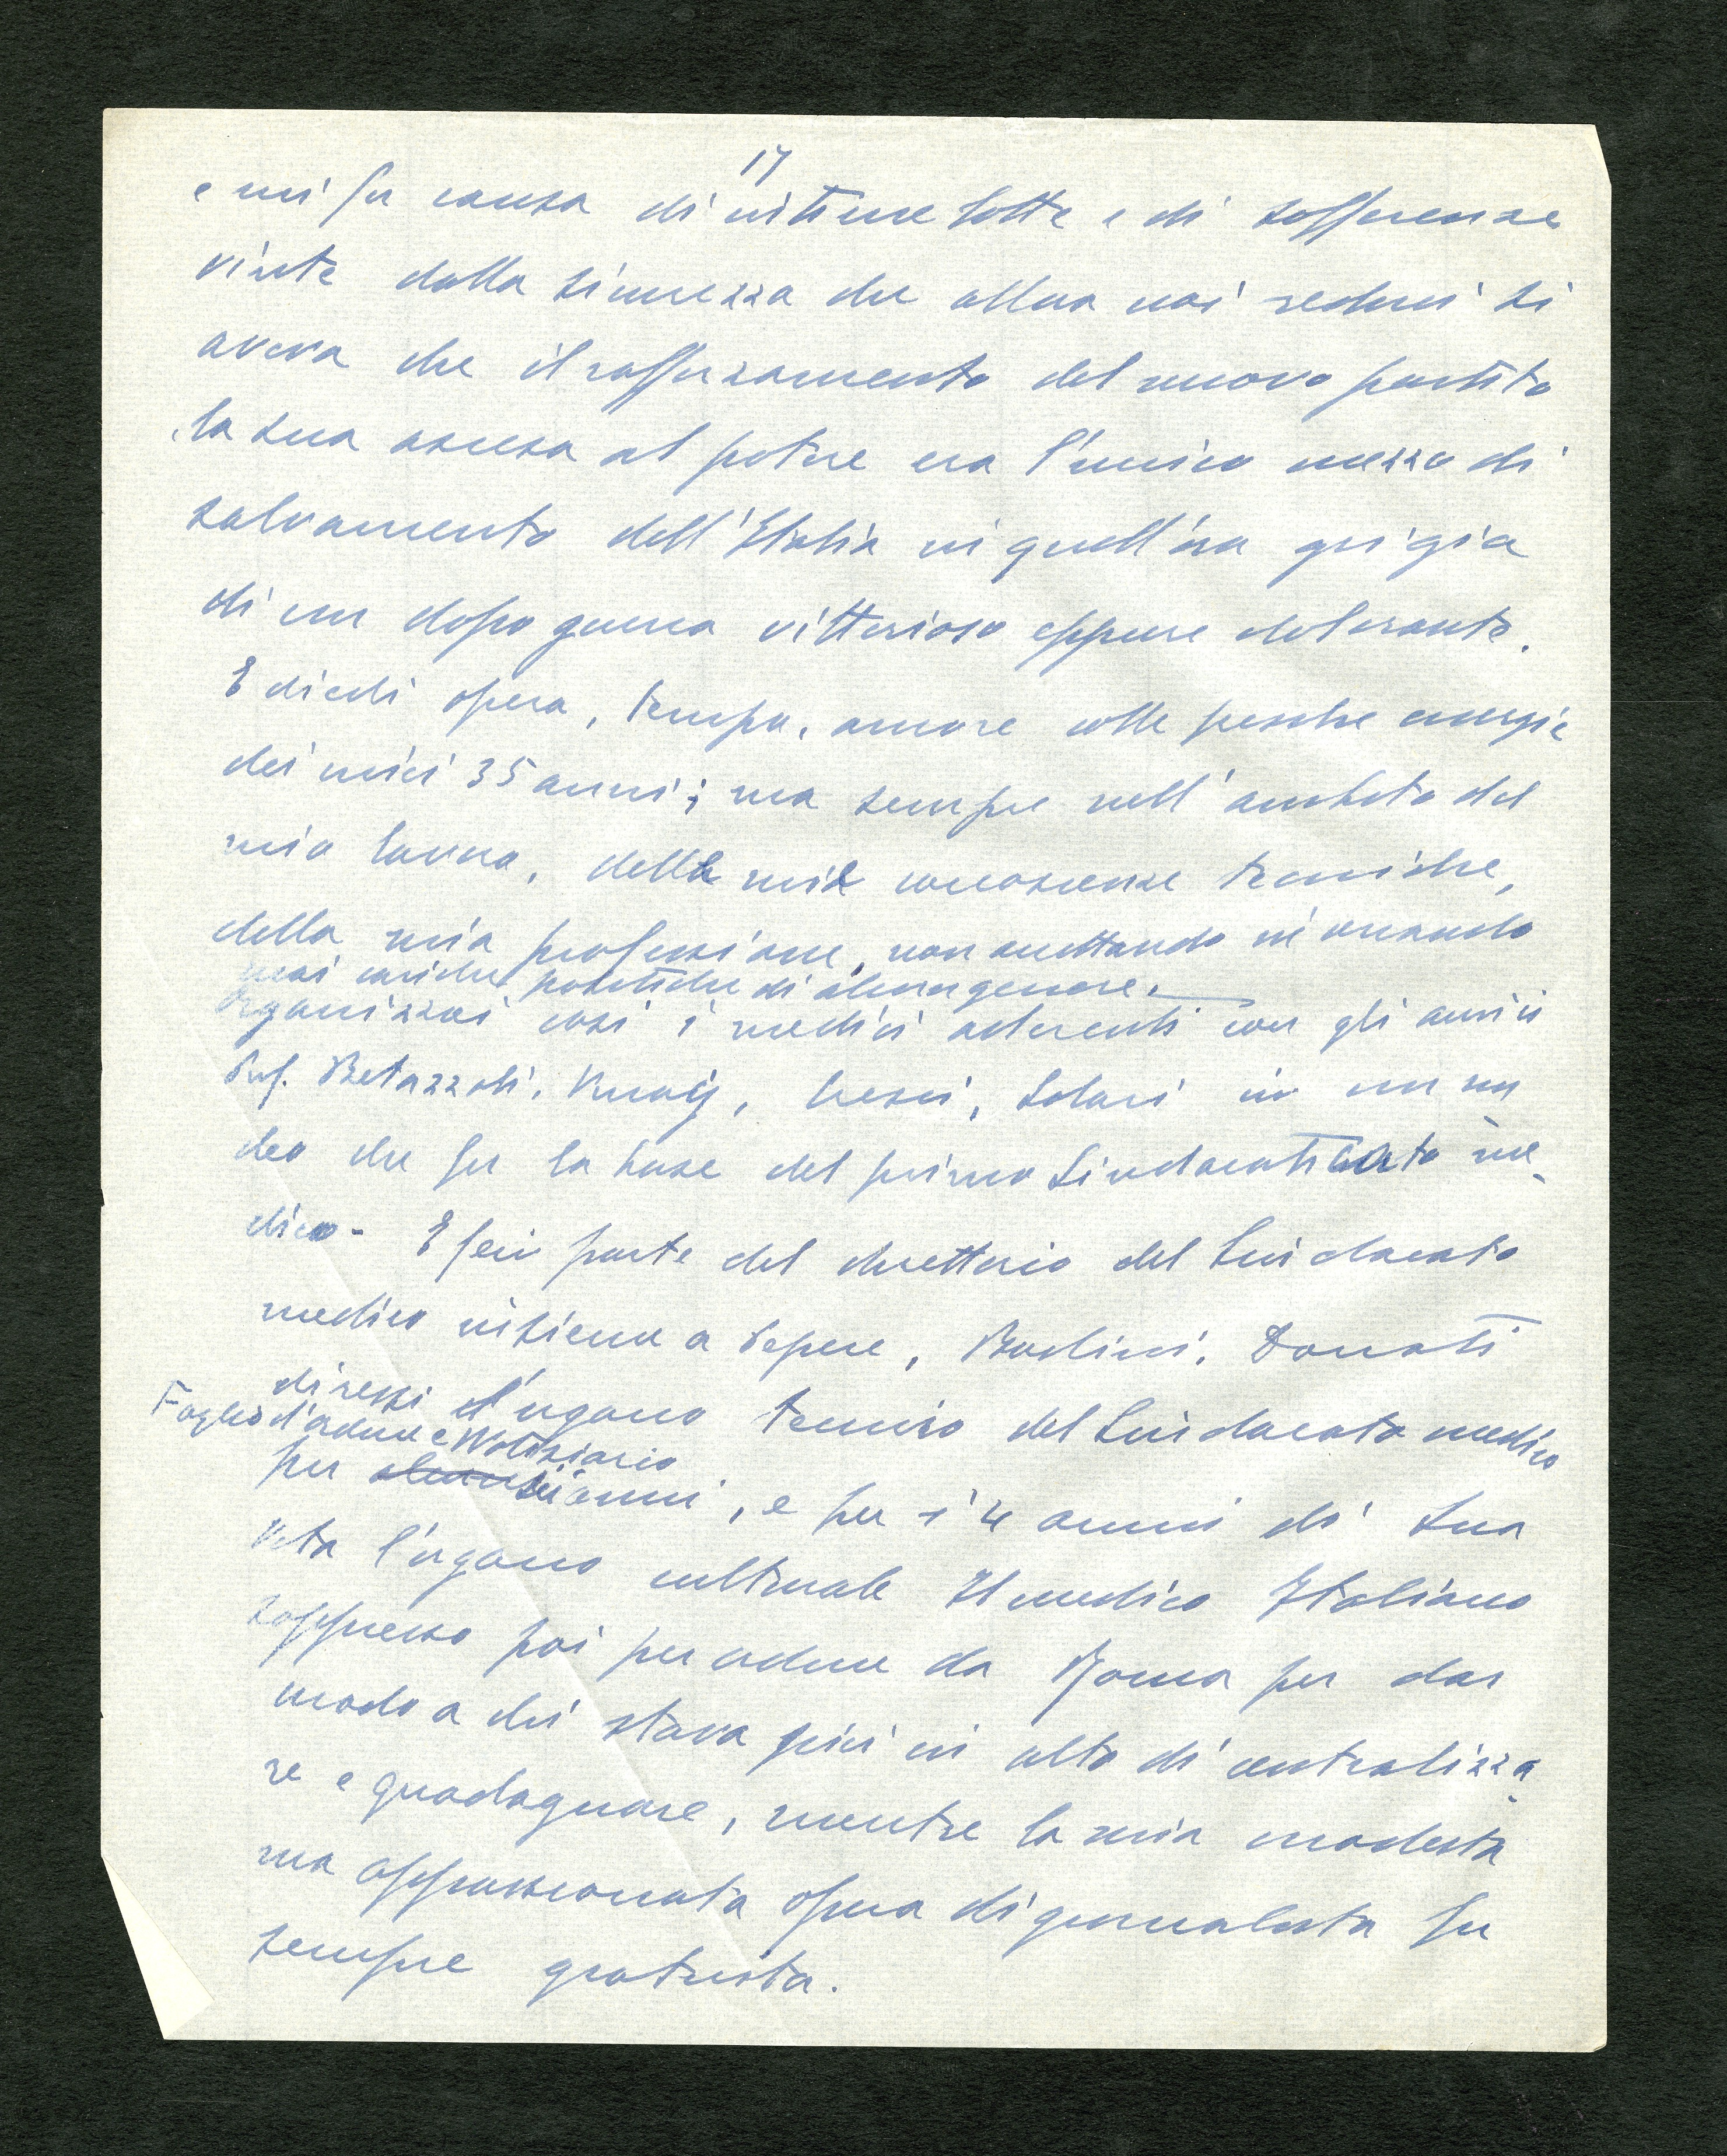 17
e mi fu causa di intime lotte e di sofferenze
vinte dalla sicurezza che allora noi reduci si
aveva che il rafforzamento del nuovo partito
la sua ascesa al potere era l'unico mezzo di
salvamento dell'Italia in quell'ora grigia
di un dopo guerra vittorioso eppure dolorante.
E diedi opera, tempo, amore colle fresche energie
dei miei 35 anni; ma sempre nell'ambito del
mio lavoro, delle mie conoscenze tecniche,
della mia professione, non accettando nè cercando
mai cariche politiche di alcun genere.
Organizzai così i medici aderenti con gli amici
Prof. Betazzoli, Cresci, Solari in un nu
cleo che fu la base del primo Sindacato me-
dico - E feci parte del direttorio del Sindacato
medico insieme a Sepere, Donati
diressi l'organo tecnico del Sindacato medico
Foglio d'ordine e Notiziario
per sei anni, e per i 4 anni di sua
vita l'organo culturale Il medico Italiano
soppresso poi per ordine da Roma per dar
modo a chi stava più in alto di centralizza-
re e guadagnare, mentre la mia modesta
ma appassionata opera di giornalista fu
sempre gratuita.